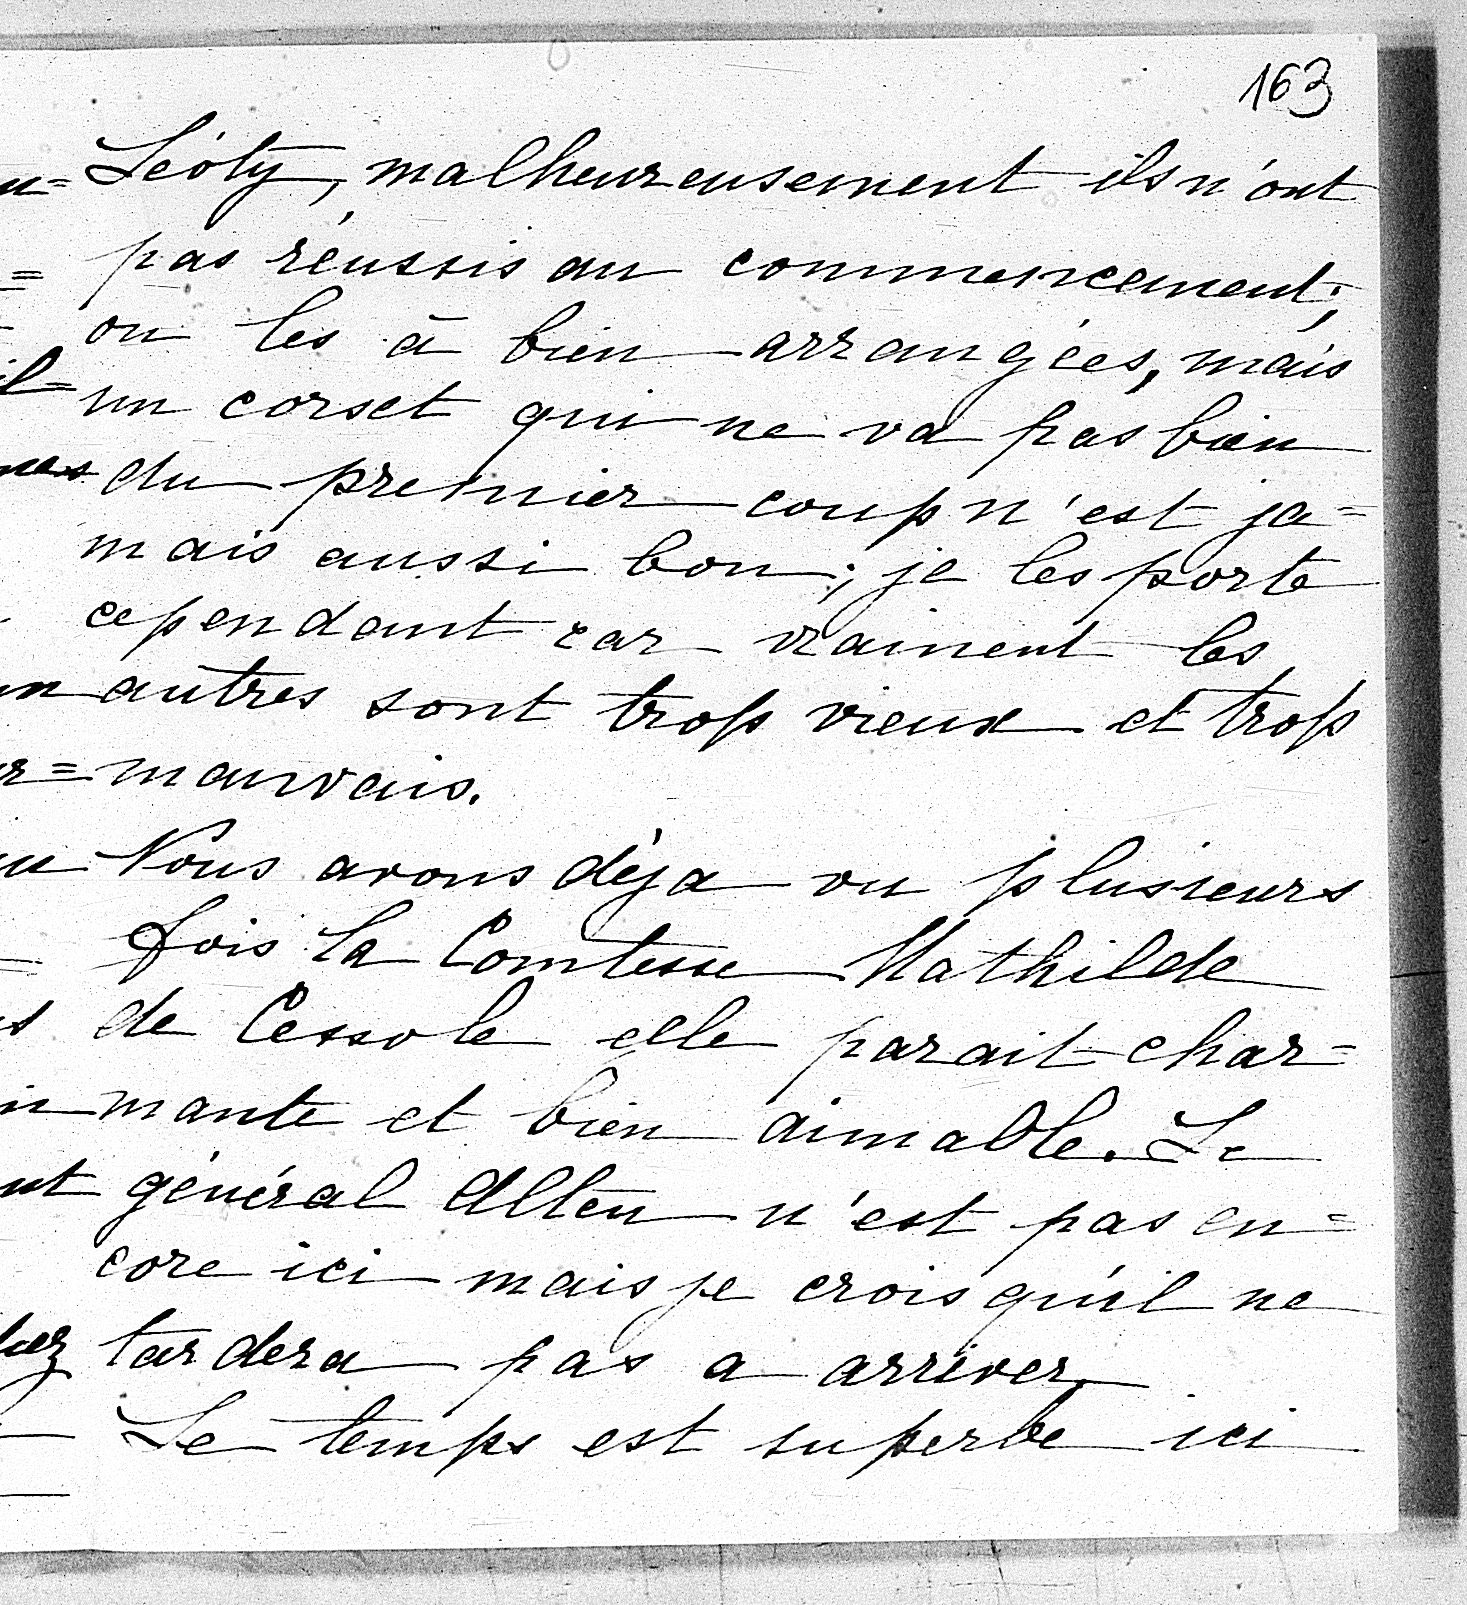 163
Léoty, malheureusement ils n'ont
pas réussis au commencement;
on les à bien arrangées, mais
un corset qui ne va pas bien
du premier coup n'est ja=
mais aussi bon; je les porte
cependant car vraiment les
autres sont trop vieux et trop
mauvais.
Nous avons déja vu plusieurs
fois la Comtesse Mathilde
de Cessole elle parait char=
mante et bien aimable. Le
général Allen n'est pas en=
core ici mais je crois qu'il ne
tardera pas a arriver.
Le temps est superbe ici